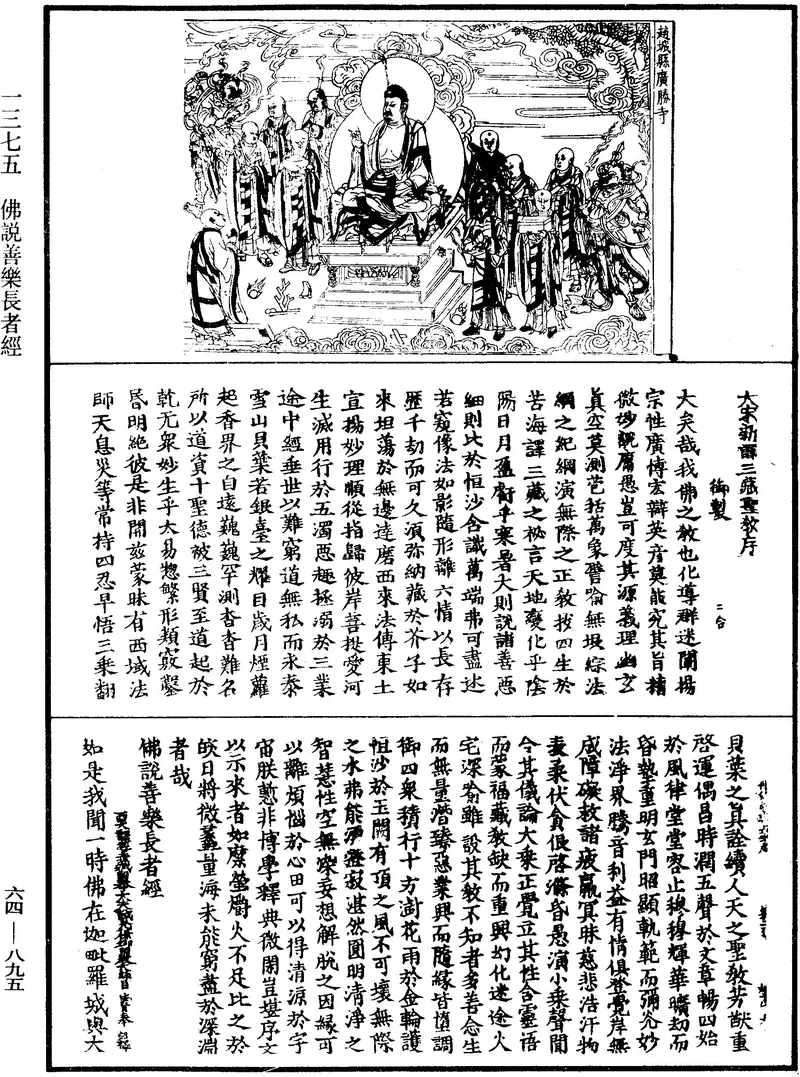 一三七五　佛說善樂長者經
趙城縣廣勝寺
大宋新譯三藏聖教序
御製
二合
大矣哉我佛之教也化導群迷闡揚
宗性廣博宏辯英彥莫能究其旨精
微妙說庸愚豈可度其源義理幽玄
真空莫測苞括萬象譬喻無垠綜法
網之紀綱演無際之正教拔四生於
苦海譯三藏之秘言天地變化乎陰
陽日月盈虧乎寒暑大則說諸善惡
細則比於恒沙含識萬端弗可盡述
若窺像法如影隨形離六情以長存
歷千劫而可久須弥納藏於芥子如
來坦蕩於無邊達磨西來法傳東土
宣揚妙理順從指歸彼岸菩提愛河
生滅用行於五濁惡趣拯溺於三業
途中經垂世以難窮道無私而永泰
雪山貝葉若銀臺之耀日歲月煙蘿
起香界之自遠巍巍罕測杳杳難名
所以道資十聖德被三賢至道起於
乾元眾妙生乎太易惣繁形類竅鑿
昏明絕彼是非開茲蒙昧有西域法
師天息災等常持四忍早悟三乘翻
貝葉之真詮續人天之聖教芳猷重
啓運偶昌時潤五聲於文章暢四始
於風律堂堂容止穆穆輝華曠劫而
昏蟄重明玄門昭顯軌範而彌光妙
法淨界騰音利益有情俱登覺岸無
成障礙救諸疲羸冥昧慈悲浩汗物
表柔伏貪佷啓滌昏愚演小乘聲聞
合其儀論大乘正覺立其性含靈悟
而蒙福藏教缺而重興幻化迷途火
宅深喻雖設其教不知者多善念生
而無量潛臻惡業興而隨緣皆墮調
御四眾積行十方澍花雨於金輪護
恒沙於玉闕有頂之風不可壞無際
之水弗能漂澄寂湛然圓明清淨之
智慧性空無染妄想解脫之因緣可
以離煩惱於心田可以得清涼於宇
宙朕慙非博學釋典微閑豈堪序文
以示來者如縻螢爝火不足比之於
皎日將微蠡量海未能窮盡於深淵
者哉
佛說善樂長者經
如是我聞一時佛在迦毗羅城與大
六四——八九五